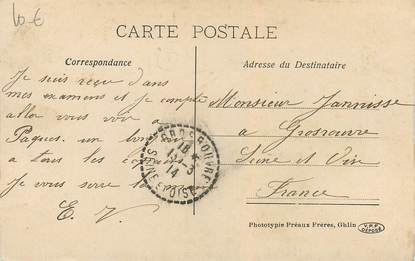 10 €
CARTE POSTALE
Correspondance
Adresse du Destinataire
Je suis reçu dans
mes examens et je compte
aller vous voir à
Paques. un
à tous les
Je vous serre la
E. V.
Monsieur Jannisse
à Grosrouvre
Seine et Oise
France
GROSROUVRE
SEINE ET OISE
18
31-3
14
Phototypie Préaux Frères, Ghlin
V.P.F.
DÉPOSÉ